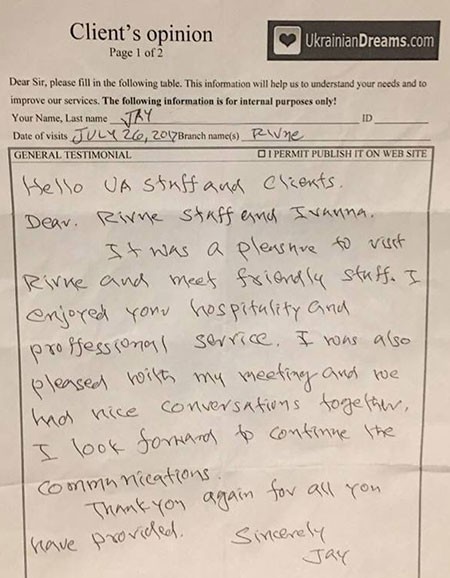 Client's opinion
Page 1 of 2
UkrainianDreams.com
Dear Sir, please fill in the following table. This information will help us to understand your needs and to
improve our services. The following information is for internal purposes only!
Your Name, Last name JAY ID
Date of visits JULY 26, 2017 Branch name(s) Rivne
GENERAL TESTIMONIAL ☐ I PERMIT PUBLISH IT ON WEB SITE
Hello UA Stuff and Clients.
Dear. Rivne Stuff and Ivanna.
It was a pleasure to visit
Rivne and meet friendly stuff. I
enjoyed your hospitality and
proffessional service. I was also
pleased with my meeting and we
had nice conversations together,
I look forward to continue the
communications.
Thank you again for all you
have provided. Sincerely
Jay